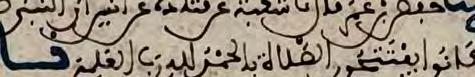 حفص بن عمر قال نا شعبة عن قتادة عن انس ان النبي
كانوا يفتتحون الصلاة بالحمد لله رب العلمين نا